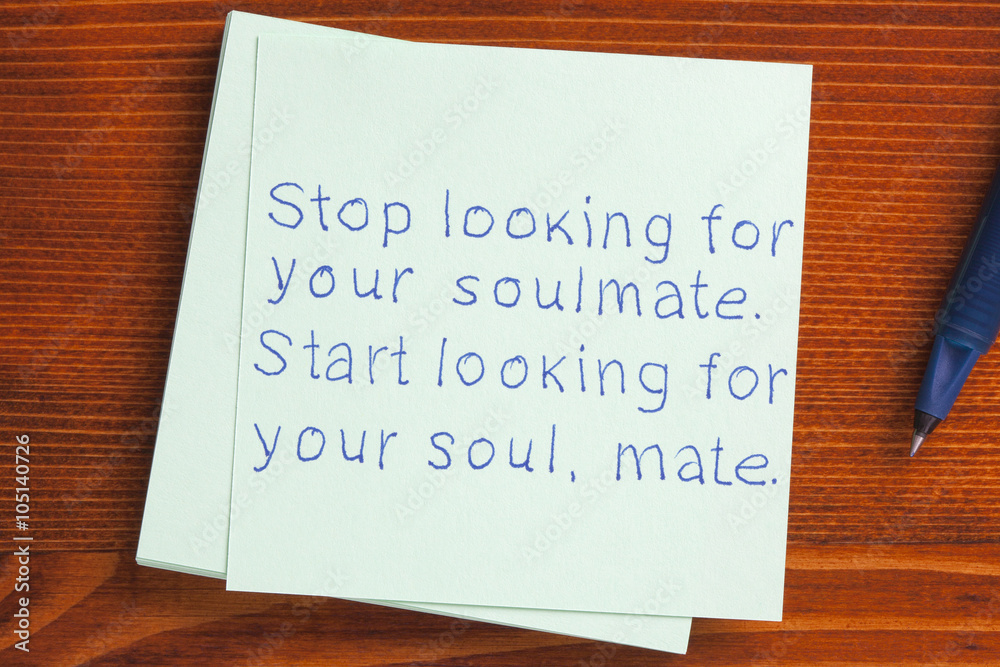 Stop looking for
your soulmate.
Start looking for
your soul, mate.
Adobe Stock | #105140726